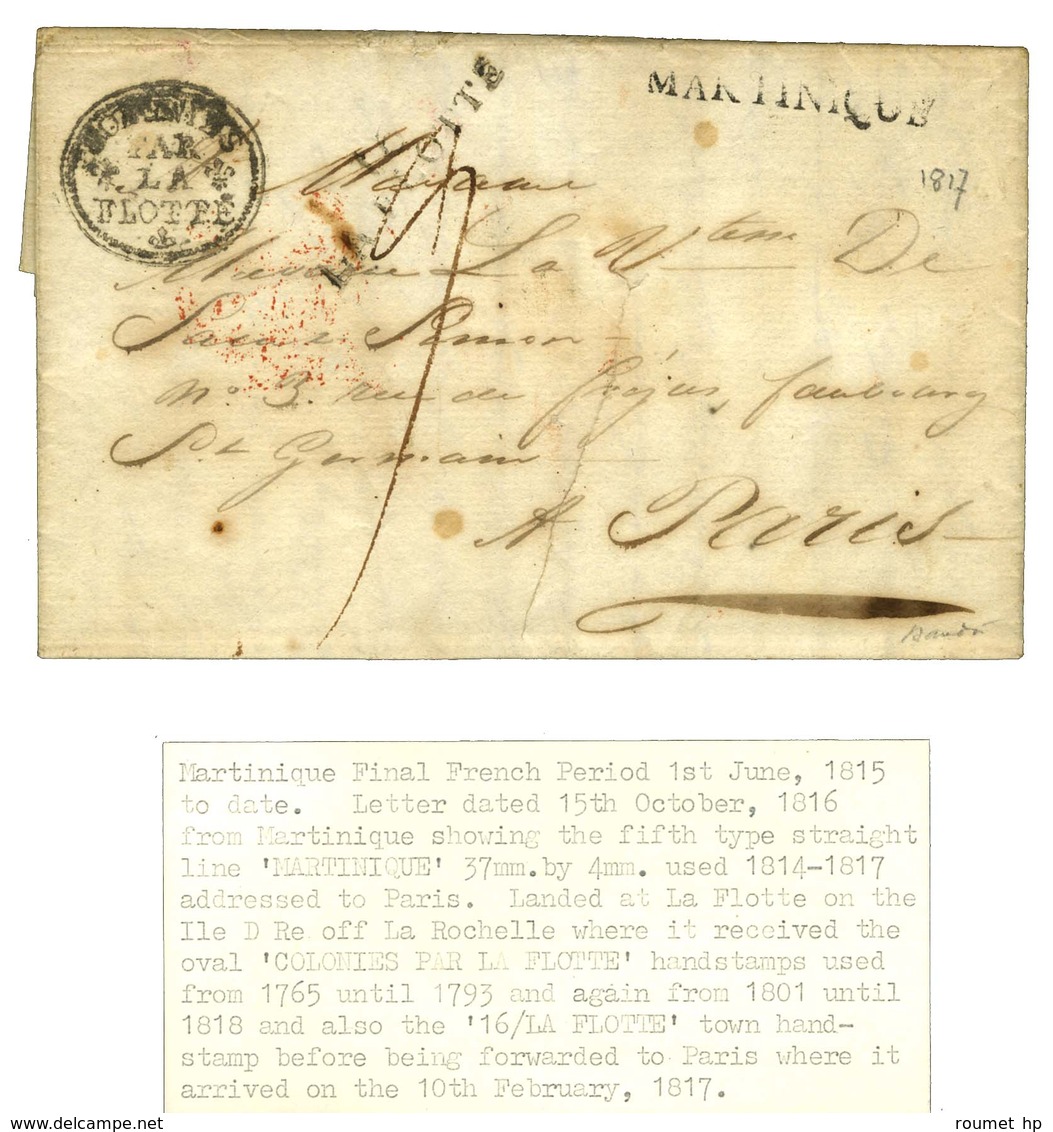 MARTINIQUE
COLONIES
PAR
LA
FLOTTE
LA FLOTTE
1817
Madame
Madame La V De
Simon
n° 3. rue de faubourg
St Germain
A Paris
Martinique Final French Period 1st June, 1815
to date. Letter dated 15th October, 1816
from Martinique showing the fifth type straight
line 'MARTINIQUE' 37mm.by 4mm. used 1814-1817
addressed to Paris. Landed at La Flotte on the
Ile D Re off La Rochelle where it received the
oval 'COLONIES PAR LA FLOTTE' handstamps used
from 1765 until 1793 and again from 1801 until
1818 and also the '16/LA FLOTTE' town hand-
stamp before being forwarded to Paris where it
arrived on the 10th February, 1817.
www.delcampe.net
roumet hp